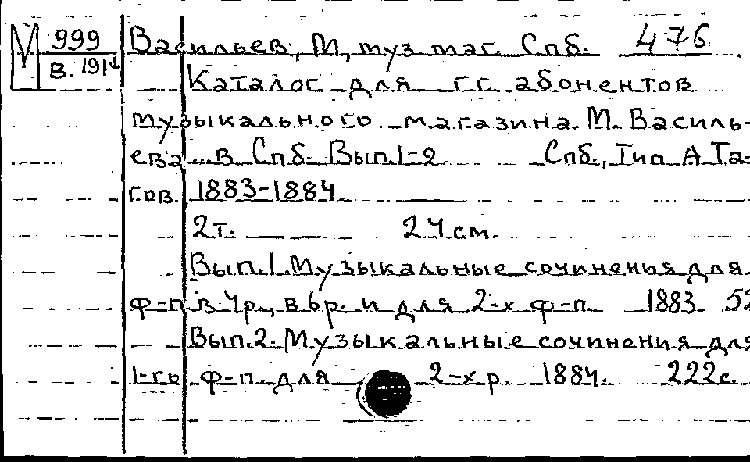 М 999 Васильев, М, муз. маг. Спб. 476
В. 191
Каталог для г.г. абонентов
музыкального магазина М. Василь-
ева в Спб. Вып. 1-2 Спб., Тип А Та-
гов. 1883-1884
2т. 24 см.
Вып. 1. Музыкальные сочиненья для
ф-п в 4р., в 6р. и для 2-х ф-п. 1883. 52
Вып. 2. Музыкальные сочинения для
1-го ф-п. для 2-х р. 1884. 222с